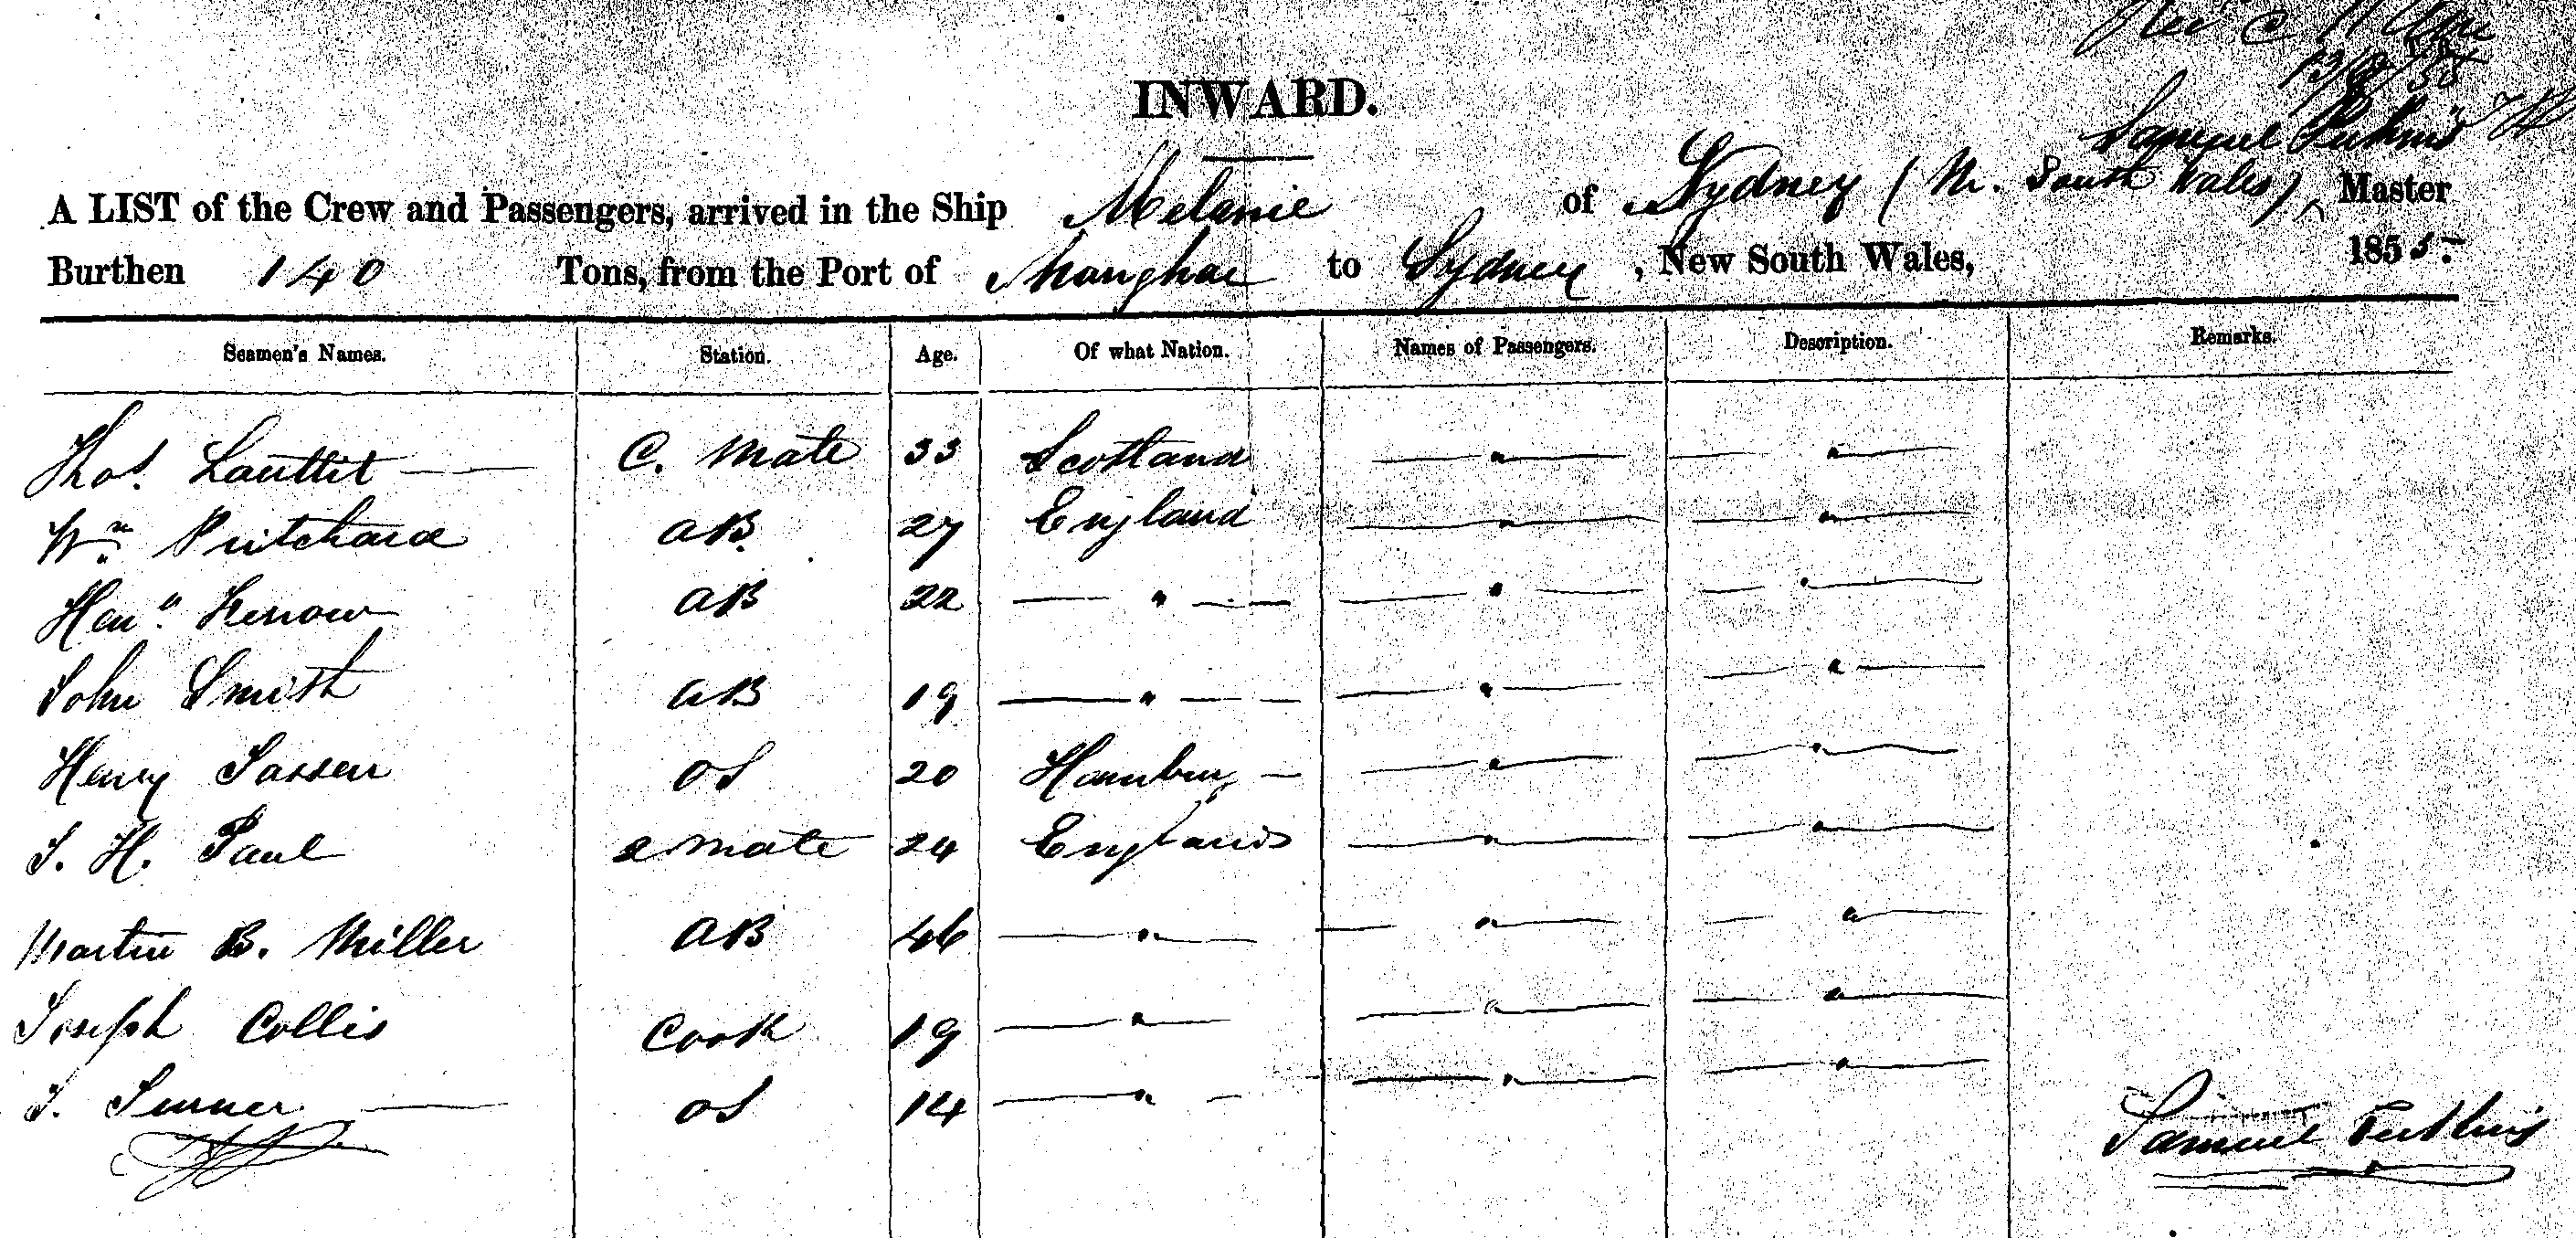 13/12/55
INWARD.
Samuel Perkins
A LIST of the Crew and Passengers, arrived in the Ship Melanie of Sydney (N. South Wales), Master
Burthen 140 Tons, from the Port of Shanghae to Sydney, New South Wales, 1855.
Seamen's Names. Station. Age. Of what Nation. Names of Passengers. Description. Remarks.
Thos. Louttit C. Mate 33 Scotland — " — — " —
Wm. Pritchard AB. 27 England — " — — " —
AB 22 — " — — " — — " —
John Smith AB 19 — " — — " — — " —
Henry Sassen OS 20 Hamburg — — " — — " —
J. H. Paul 2 mate 24 England — " — — " —
Martin B. Miller AB 46 — " — — " — — " —
Joseph Collis Cook 19 — " — — " — — " —
J. Turner — OS 14 — " — — " — — " —
Samuel Perkins